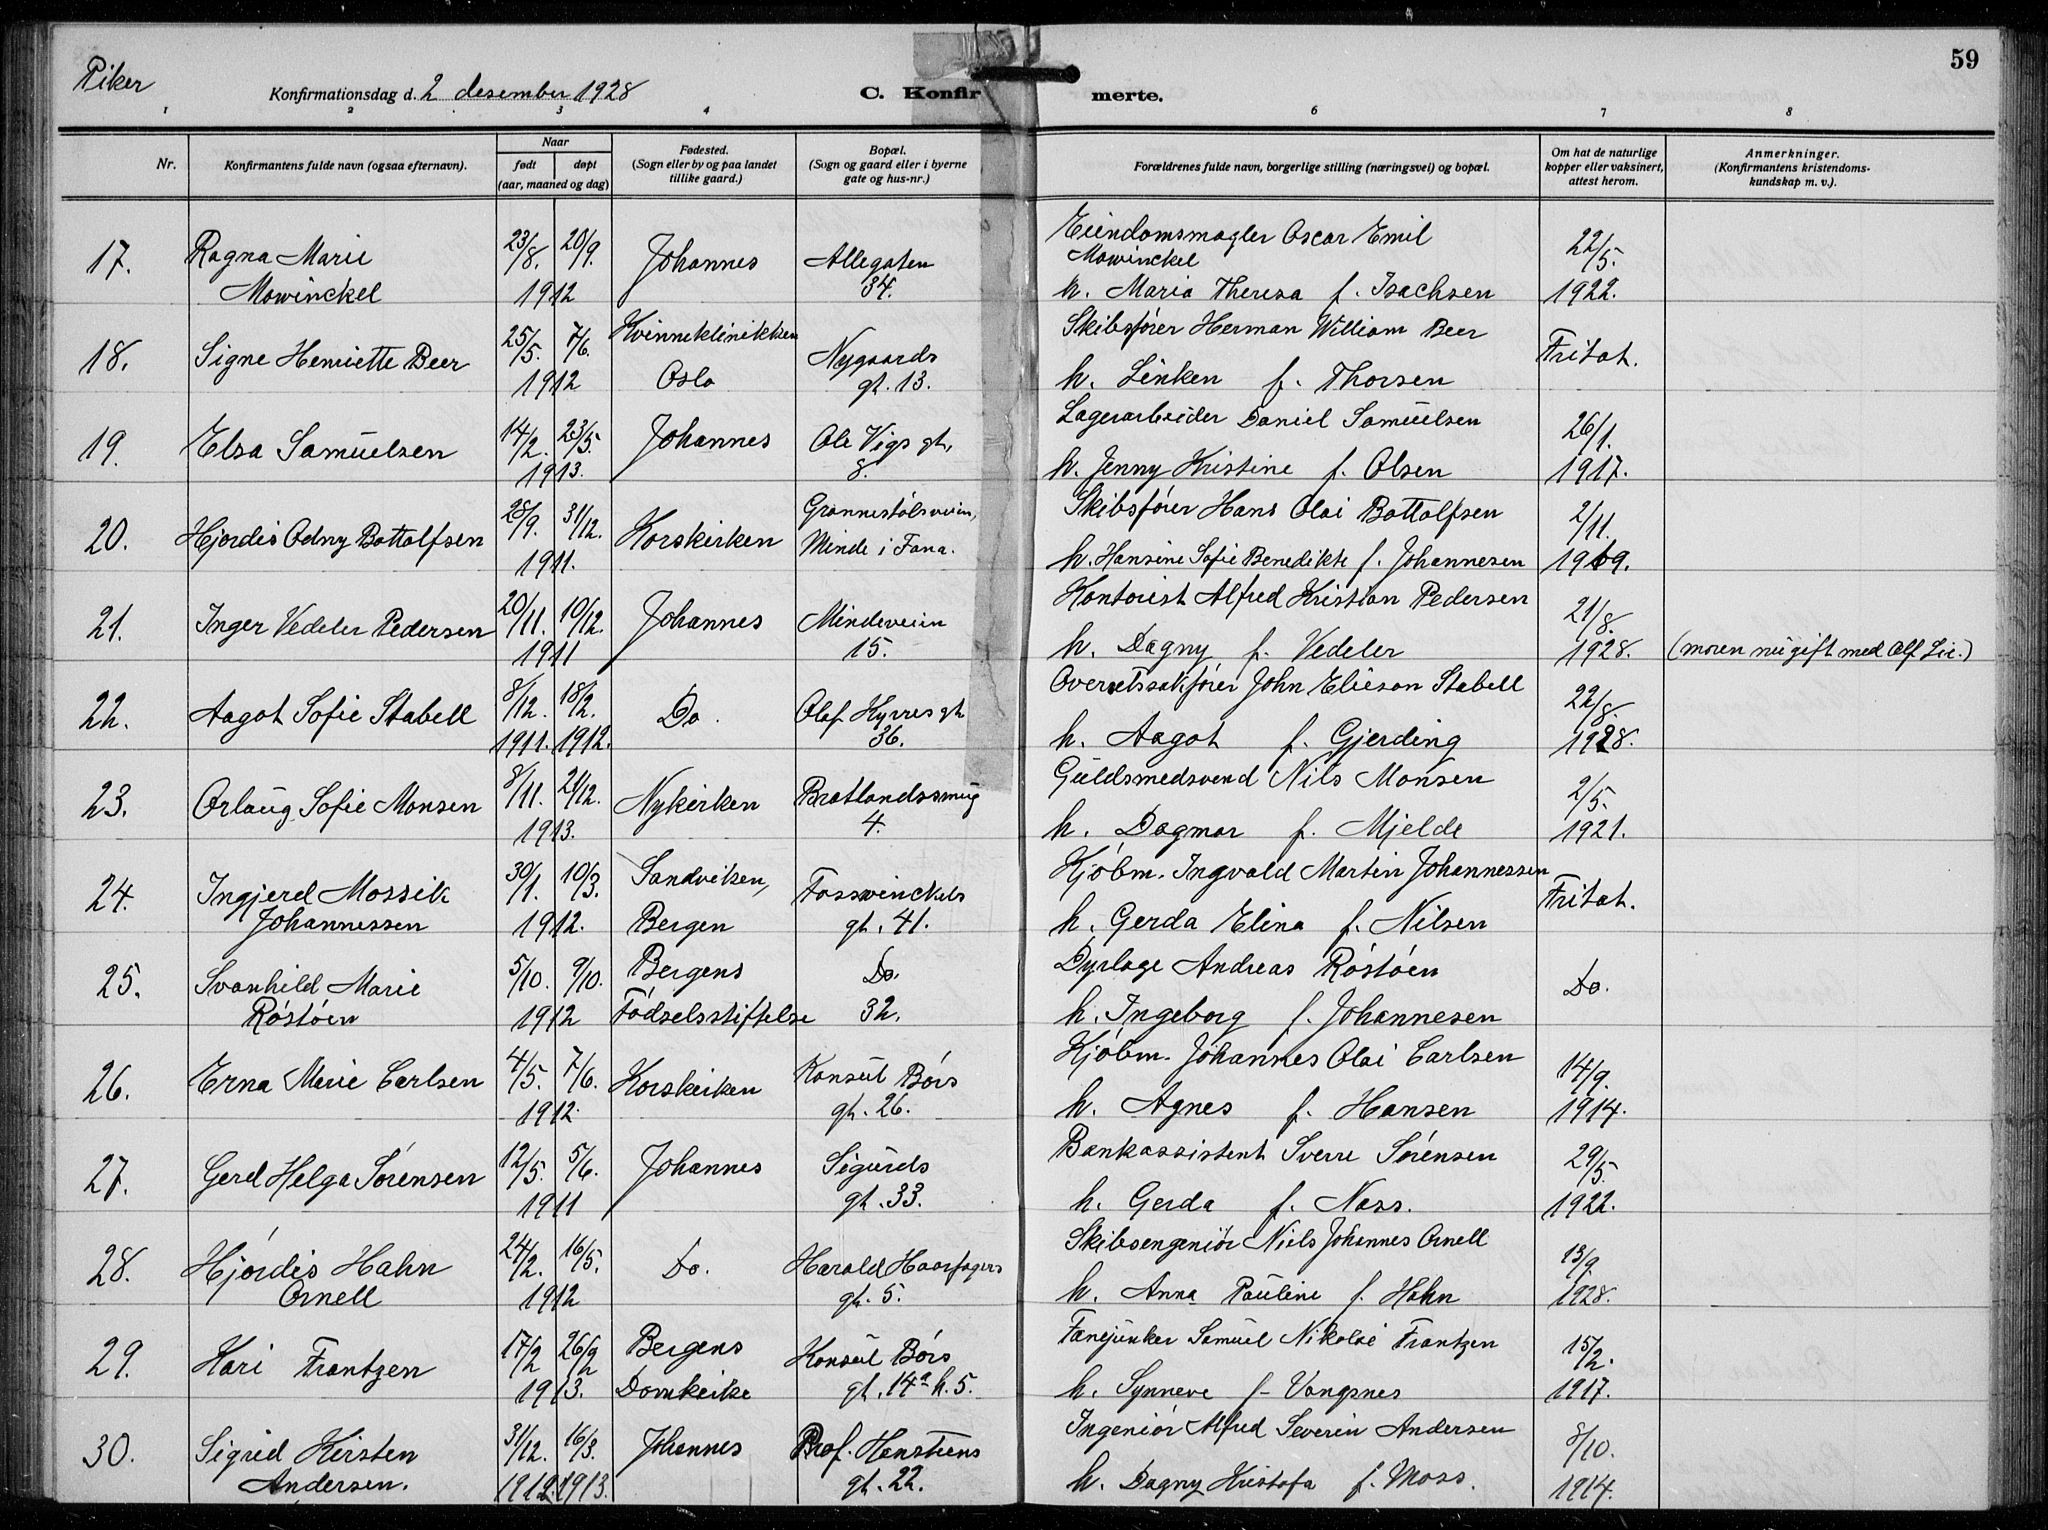 59
Piker
Konfirmationsdag d. 2 desember 1928
C. Konfirmerte.
1 2 3 4 5 6 7 8
Nr.
Konfirmantens fulde navn (ogsaa efternavn).
Naar
født døpt
(aar, maaned og dag)
Fødested.
(Sogn eller by og paa landet
tillike gaard.)
Bopæl.
(Sogn og gaard eller i byerne
gate og hus-nr.)
Forældrenes fulde navn, borgerlige stilling (næringsvei) og bopæl.
Om hat de naturlige
kopper eller vaksinert,
attest herom.
Anmerkninger.
(Konfirmantens kristendoms-
kundskap m. v.).
17. Ragna Marie 23/8. 20/9. Johannes Allegaten Eiendomsmægler Oscar Emil Mowinckel 22/5.
Mowinckel 1912 34. h. Maria Theresa f. Isachsen 1922.
18. Signe Henriette Beer 25/5. 7/6. Kvinneklinikken Nygaards Skibsfører Herman William Beer Fritat.
1912 Oslo gt. 13. h. Linken f. Thorsen
19. Elsa Samuelsen 14/2. 23/5. Johannes Ole Vigs gt, Lagerarbeider Daniel Samuelsen 26/1.
1913. 8. h. Jenny Kristine f. Olsen 1917.
20. Hjordis Odny Bottolfsen 28/9. 31/12. Korskirken Grønnestølsveien, Skibsfører Hans Olai Bottolfsen 2/11.
1911. Minde i Fana. h. Hansine Sofie Benedikte f. Johannesen 1919.
21. Inger Vedeler Pedersen 20/11. 10/12. Johannes Mindeveien Kontorist Alfred Kristian Pedersen 21/8.
1911 15. h. Dagny f. Vedeler 1928. (moren nu gift med Alf Lie.)
22. Aagot Sofie Stabell 8/12. 18/2. Do. Olaf Kyrres gt Overretssakfører John Elieson Stabell 22/8.
1911. 1912. 36. h. Aagot f. Gjerding 1928.
23. Orlaug Sofie Monsen 8/11. 21/12. Nykirken Bratlandssmug Guldsmedsvend Nils Monsen 2/5.
1913. 4. h. Dagmar f. Mjelde 1921.
24. Ingjerd Mossik 30/1. 10/3. Sandviken, Fosswinckels Kjøbm. Ingvald Martin Johannessen Fritat.
Johannessen 1912. Bergen gt. 41. h. Gerda Elina f. Nilsen
25. Svanhild Marie 5/10. 9/10. Bergens Do. Dyrlæge Andreas Røstøen Do.
Røstøen 1912 Fødselsstiftelse 32. h. Ingeborg f. Johannesen
26. Erna Marie Carlsen 4/5. 7/6. Korskirken Konsul Børs Kjøbm. Johannes Olai Carlsen 14/9.
1912. gt. 26. h. Agnes f. Hansen 1914.
27. Gerd Helga Sørensen 12/5. 5/6. Johannes Sigurds Bankassistent Sverre Sørensen 29/5.
1911 gt. 33. h. Gerda f. Næss. 1922.
28. Hjørdis Hahn 24/2. 16/5. Do. Harald Haarfagers Skibsengeniør Niels Johannes Ornell 13/9.
Ornell 1912 gt. 5. h. Anna Pauline f. Hahn 1928.
29. Kari Frantzen 17/2 Bergens Konsul Børs Fanejunker Samuel Nikolai Frantzen 15/2.
1913. Domkirke gt. 14a h. 5. h. Synneve f. Vangsnes 1917.
30. Sigrid Kirsten 31/12. 16/3. Johannes Prof. Hansteens Ingeniør Alfred Severin Andersen 8/10.
Andersen. 1912. 1913. gt. 22. h. Dagny Kristofa f. Moss. 1914.